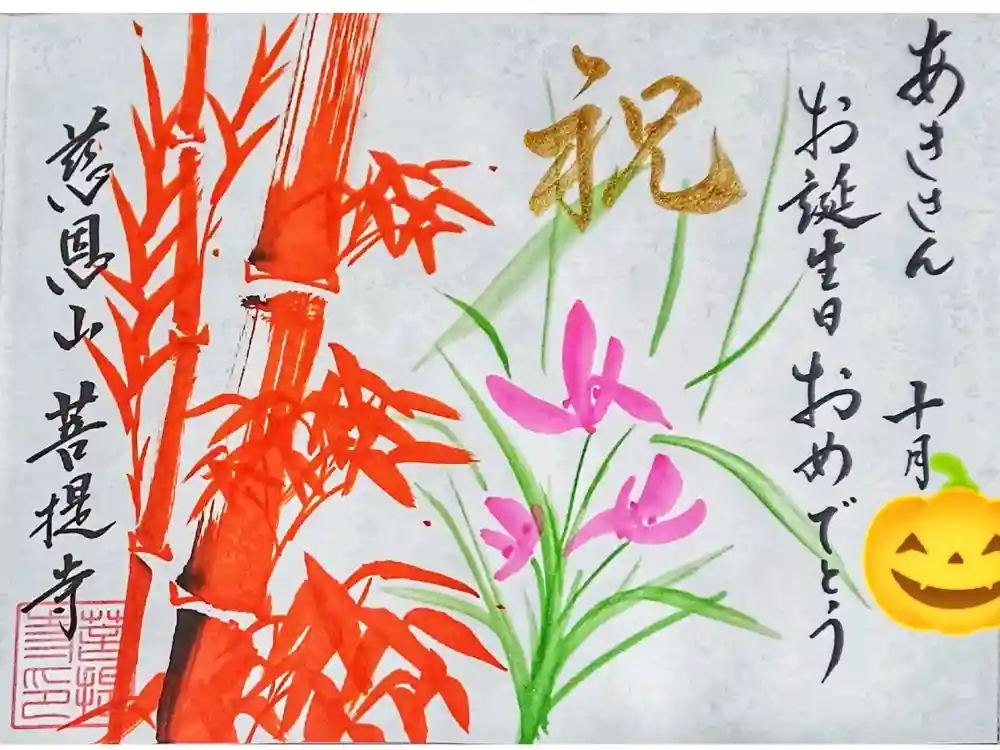 あきさん 十月
お誕生日おめでとう
祝
慈恩山 菩提寺